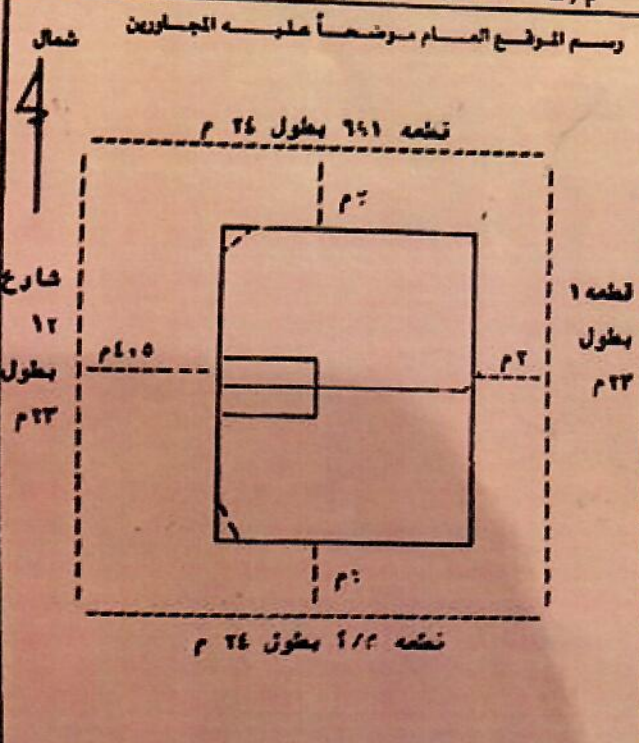 رسم الموقع العام موضحاً عليه المجاورين
شمال
قطعه ٦٤١ بطول ٢٤ م
م
شارع
١٢
بطول
٢٣م
٤,٥م
٢م
قطعه ١
بطول
٢٣م
م
قطعه بطول ٢٤ م